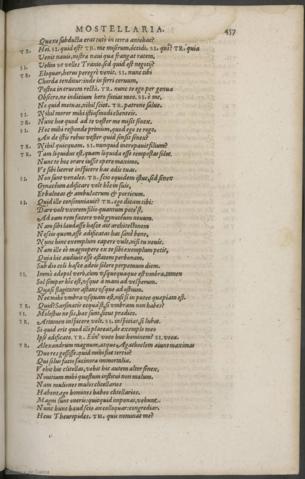 MOSTELLARIA. 437
Quem subducta erat tuto in terra antehac?
TR. Hei. SI. quid est? TR. me miserum, occidi. SI. quid? TR. quia
Venit nauis, nostrae naui quae frangat ratem,
SI. Velim vt velles Tranio. sed quid est negotij?
TR. Eloquar, herus peregrè venit. SI. nunc tibi
Chorda tenditur: inde in ferri ceruum,
Postea in crucem recta. TR. nunc te ego per genua
Obsecro, ne indicium hero facias meo. SI. è me,
Ne quid metuas, nihil sciet. TR. patrone salue.
SI. Nihil moror mihi istiusmodi clienteis.
TR. Nunc hoc quod ad te noster me misit senex.
SI. Hoc mihi responde primum, quod ego te rogo,
An de istis rebus vester quid sensit senex?
TR. Nihil quicquam. SI. nunquid increpauit filium?
TR. Tam liquidus est, quam liquida esse tempestas solet.
Nunc te hoc orare iussit opere maximo,
Vt sibi liceret inspicere has aedis tuas.
SI. Non sunt venales. TR. scio equidem istuc, sed senex
Gynaeceum aedificare volt hic in suis,
Et balineas & ambulacrum & porticum.
SI. Quid ille consomniauit? TR. ego dicam tibi:
Dare volt vxorem filio quantum potest,
Ad eam rem facere volt gynaeceum nouum.
Nam sibi laudasse hasce ait architectonem
Nescio quem, esse aedificatas has sanè bene,
Nunc hinc exemplum capere volt, nisi tu neuis.
Nam ille eò magnopere ex te sibi exemplum petit,
Quia hic audiuit esse aestatem perbonam,
Sub dio coli hasce adesse solere perpetuum diem.
SI. Immò aedepol verò, cùm vsquequaque est vmbra, tamen
Sol semper hîc est, vsque à mani ad vesperum.
Quasi flagitator astat vsque ad ostium.
Nec mihi vmbra vsquam est, nisi si in puteo quaepiam est.
TR. Quid? Sarsinatis ecqua'st, si vmbram non habes?
SI. Molestus ne sis, haec sunt, sicut praedico.
TR. Attamen inspicere volt. SI. inspiciat, si lubet.
Si quid erit quod illi placeat, de exemplo meo
Ipse aedificato. TR. Eón? voco huc hominem? SI. voca.
TR. Alexandrum magnum, atque Agathoclem aiunt maximas
Duo res gessisse, quid mihi fiet tertio?
Qui solus facio facinora immortalia.
Vehit hic clitellas, vehit hic autem alter senex,
Nouitium mihi quaestum institui non malum.
Nam muliones mulos clitellarios
Habent, ego homines habeo clitellarios.
Magni sunt oneris: quicquid imponas, vehunt.
Nunc hunc haud scio an colloquar: congrediar.
Heus Theuropides. TR. quis nominat me?